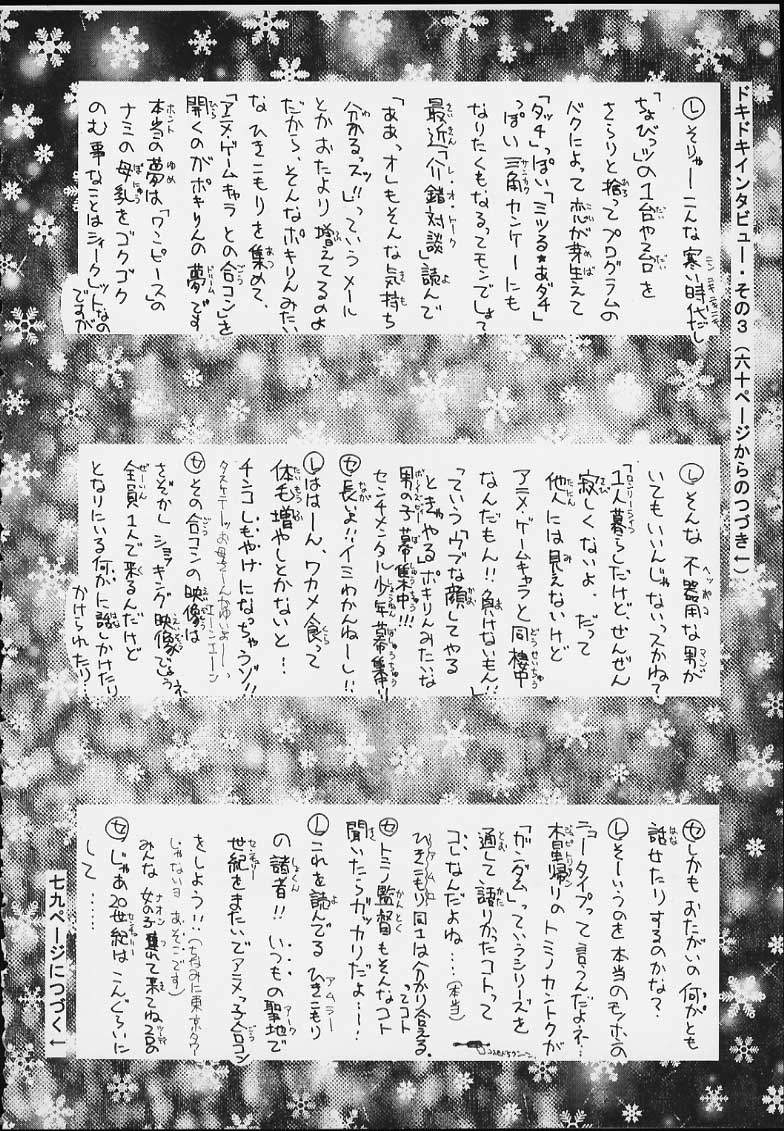 ドキドキインタビュー・その3（六十ページからのつづき←）
Ⓛそりゃーこんな寒い時代だし
「ちょびっツ」の1台や2台を
さらりと捨ってプログラムの
バクによって恋が芽生えて
「タッチ」っぽい「ミツる★あダチ」
っぽい三角カンケーにも
なりたくもなるってモンでしょて
最近「介錯対談」読んで
「ああっオレもそんな気持ち
分かるっス!!」っていうメール
とかおたより増えてるのよ
だから、そんなポキりんみたい
なひきこもりを集めて、
「アニメ・ゲームキャラとの合コン」を
開くのがポキりんの夢です
本当の夢は「ワンピース」の
ナミの母乳をゴクゴク
のむ事なことはシィークレットなの
ですが
Ⓛそんな不器用な男が
いてもいいんじゃないってかね?
1人暮らしだけど、ぜんぜん
寂しくないよ。だって
他人には見えないけど
アニメ・ゲームキャラと同棲中
なんだもん!!負けないもん!!」
っていう「ウブな顔してやる
ときゃやるポキりんみたいな
男の子募集中!!!
センチメンタル少年募集中!!
Ⓣ長いよ!!イミわかんねーし!!
Ⓛははーん、ワカメ食って
体毛増やしとかないと!!
チンコしもやけになっちゃうゾ!!
Ⓣその合コンの映像は
さぞかしショッキング映像でしょうネ、
全員1人で来るんだけど
となりにいる何かに話しかけたり
かけられたり…
Ⓣしかもおたがいの何かとも
話せたりするのかな?
Ⓛそーいうのを本当のモンホの
ニュータイプって言うんだよネ…
木星帰りのトミノカントクが
「ガンダム」っていうシリーズを
通して語りたかったコトって
コレなんだよね…(本当)
ひきこもり同士は分かり合える。
ってコト
Ⓣトミノ監督もそんなコト
聞いたらガッカリだよ…!
Ⓛこれを読んでるひきこもり
の諸君!!いつもの聖地で
世紀をまたいでアニメっ子合コン
をしよう!!(ちなみに東京タワー
じゃないヨ あそこです)
みんな女の子連れて来てね2台の
Ⓣじゃあ20世紀はこんぐらいに
して……
七九ページにつづく←